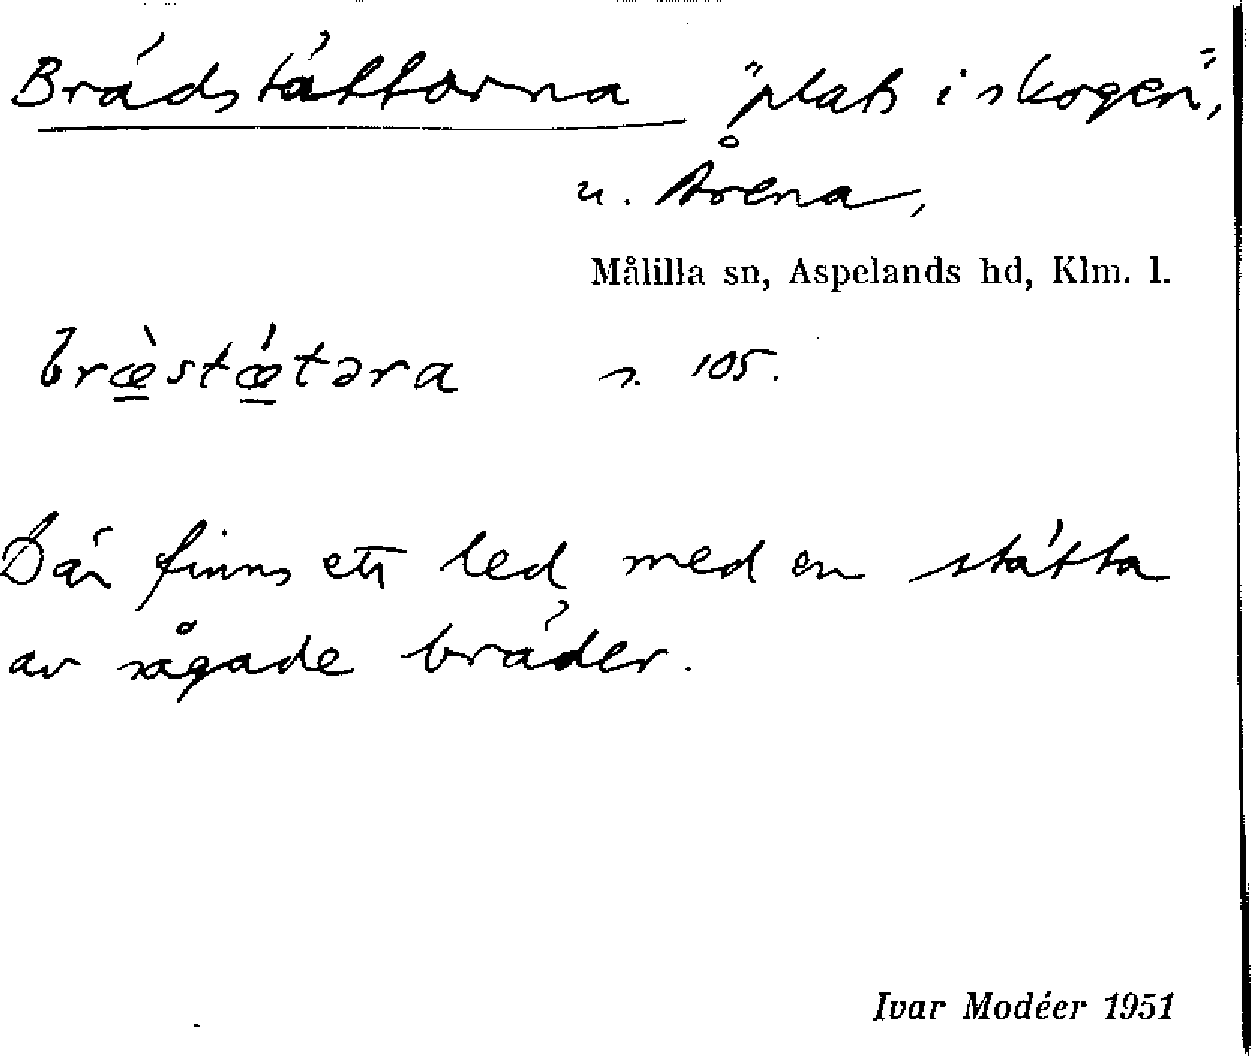 Brädstättorna "plats i skogen",
u. Årena,
Målilla sn, Aspelands hd, Klm. l.
bræ̀stǽtəra s. 105.
Där finns ett led med en stätta
av sågade bräder.
Ivar Modéer 1951